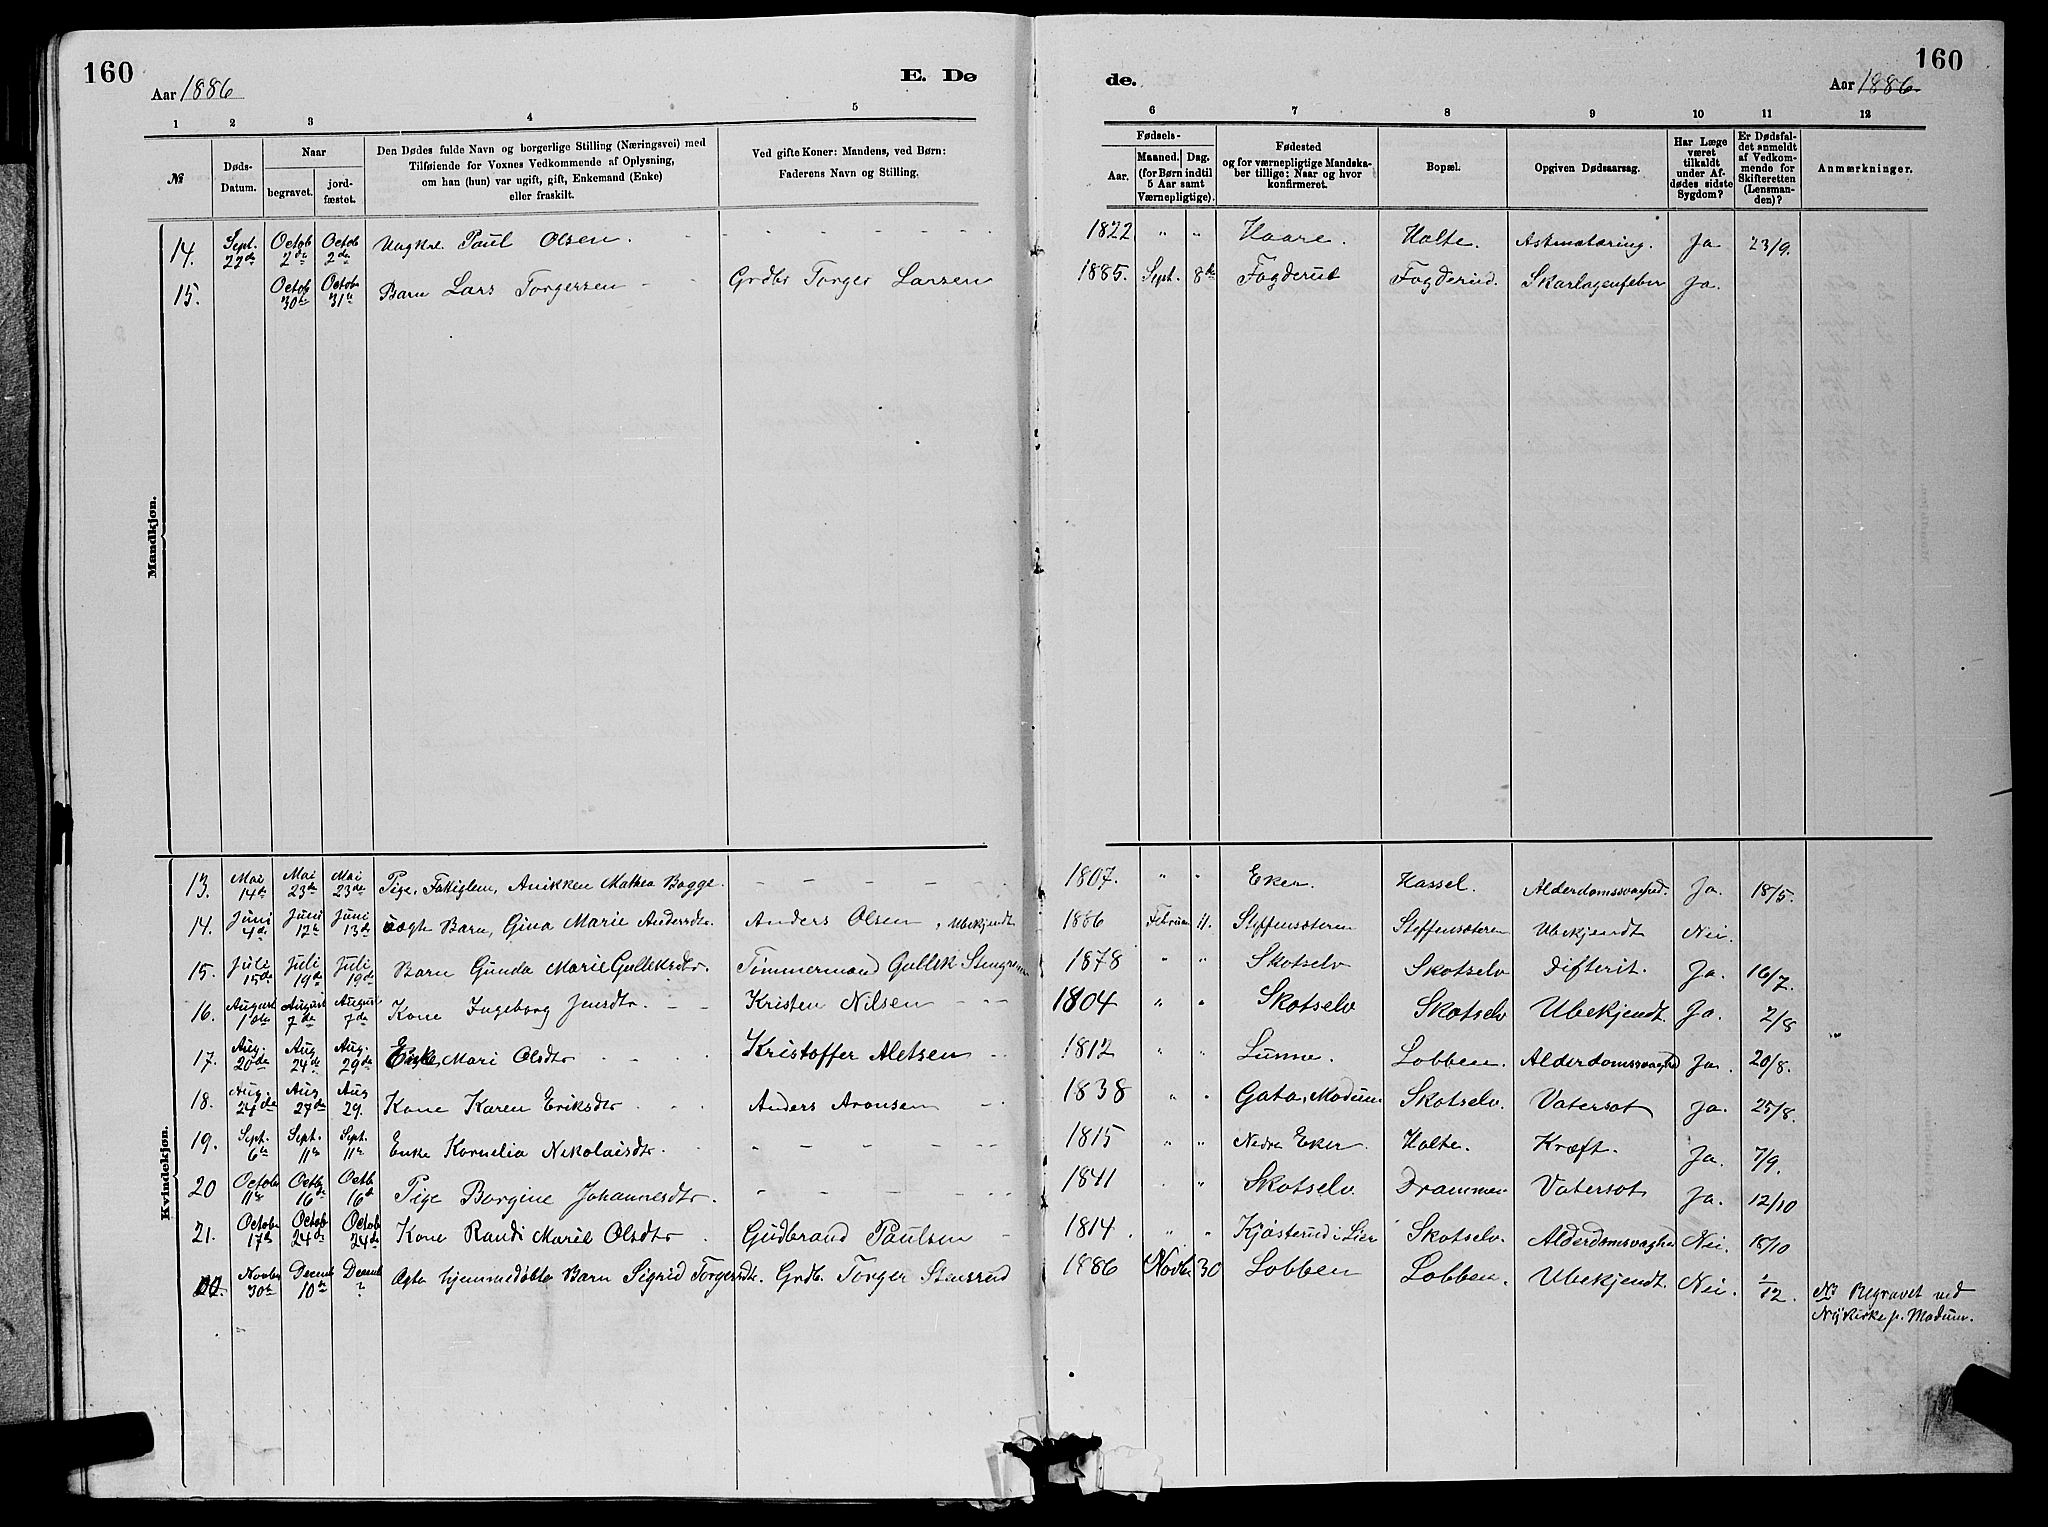 160
Aar 1886
E. Dø
de.
160
Aar 1886.
1 2 3 4 5 6 7 8 9 10 11 12
№
Døds-
Datum.
Naar
begravet.
jord-
fæstet.
Den Dødes fulde Navn og borgerlige Stilling (Næringsvei) med
Tilføiende for Voxnes Vedkommende af Oplysning,
om han (hun) var ugift, gift, Enkemand (Enke)
eller fraskilt.
Ved gifte Koner: Mandens, ved Børn:
Faderens Navn og Stilling.
Fødsels-
Aar.
Maaned. Dag.
(for Børn indtil
5 Aar samt
Værnepligtige).
Fødested
og for værnepligtige Mandska-
ber tillige: Naar og hvor
konfirmeret.
Bopæl.
Opgiven Dødsaarsag.
Har Læge
været
tilkaldt
under Af-
dødes sidste
Sygdom?
Er Dødsfal-
det anmeldt
af Vedkom-
mende for
Skifteretten
(Lensman-
den)?
Anmærkninger.
Mandkjøn.
14. Sept. 22de Octob 2de Octob 2de Ungkal. Paul Olsen. - - - - - 1822 " " Haare. Holte. Astmatæring. Ja 23/9.
15. Octob 30te Octob 31te Barn Lars Torgersen - - Grdbr Torger Larsen 1885. Sept. 8de Fogderud Fogderud. Skarlagenfeber Ja.
Kvindekjøn.
13. Mai 14de Mai 23de Mai 23de Pige, Anikken Mathea Bagge. - - - - - 1807. " " Eker. Hassel. Alderdomssvaghed. Ja. 18/5.
14. Juni 4de Juni 12te Juni 13de uægte Barn, Gina Marie Andersdtr. Anders Olsen, Ubekjendt 1886 Februar 11. Steffensæteren Steffensæteren Ubekjendt Nei.
15. Juli 15de Juli 19de Juli 19de Barn Gunda Marie Gulliksdtr. Tømmermand Gullik 1878 " " Skotselv Skotselv Difterit. Ja. 16/7.
16. August 1ste August 7de August 7de Kone Ingeborg Jensdtr. - - Kristen Nilsen - - 1804 " " Skotselv Skotselv Ubekjendt. Ja. 2/8
17. Aug. 20de Aug 24de Aug. 29de Enke, Mari Olsdtr - - - Kristoffer Aletsen - 1812 " " Lunne. Lobben. Alderdomssvaghed Ja. 20/8.
18. Aug. 24de Aug 27de Aug 29. Kone Karen Eriksdtr - - Anders Aronsen - 1838 " " Gata, Modum Skotselv. Vatersot Ja. 25/8.
19. Sept. 6te Sept. 11te Sept. 11te Enke Kornelia Nikolaisdtr. - - - - - 1815 " " Nedre Eker. Holte. Kræft. Ja. 7/9.
20 Octobr 11te Octb 16de Octb 16de Pige Borgine Johannesdtr. - - - - - 1841 " " Skotselv. Drammen Vatersot Ja. 12/10
21. Octobr 17de Octob 24de Octob 24de Kone Randi Marie Olsdtr - Gudbrand Paulsen - 1814. " " Kjøsterud i Lier Skotselv. Alderdomsvaghed Nei. 18/10
22. Novbr 30te Decemb 10de Decemb ? Ægte hjemmedøbte Barn Sigrid Torgersdtr. Grdb. Torger Stensrud 1886 Novbr 30 Lobben Lobben. Ubekjendt. Nei. 1/12. NB Begravet ved
Nykirke p. Modum.